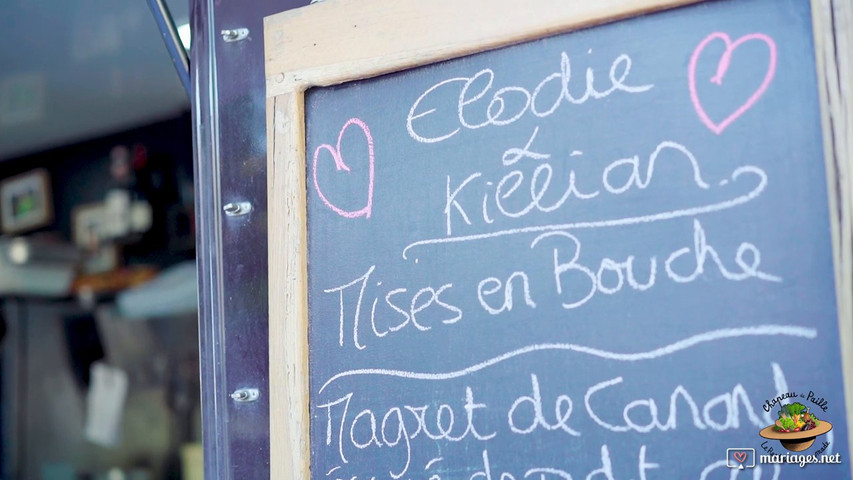 Elodie
&
Killian
Mises en Bouche
Magret de Canard
Chapeau de Paille
mariages.net